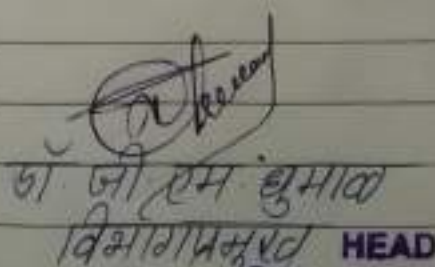 डॉ. जी. एम. धुमाळ
विभागप्रमुख HEAD